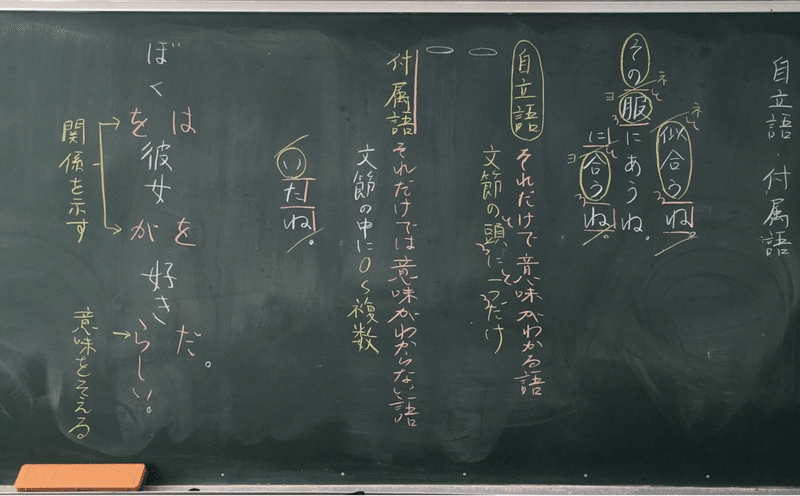 自立語・付属語
似合うね。
その服にあうね。
に合うね。
自立語 それだけで意味がわかる語
文節の頭に一つだけ
付属語 それだけでは意味がわからない語
文節の中に0〜複数
いたね。
は を だ。
ぼく 彼女 好き
を が らしい。
関係を示す
意味をそえる